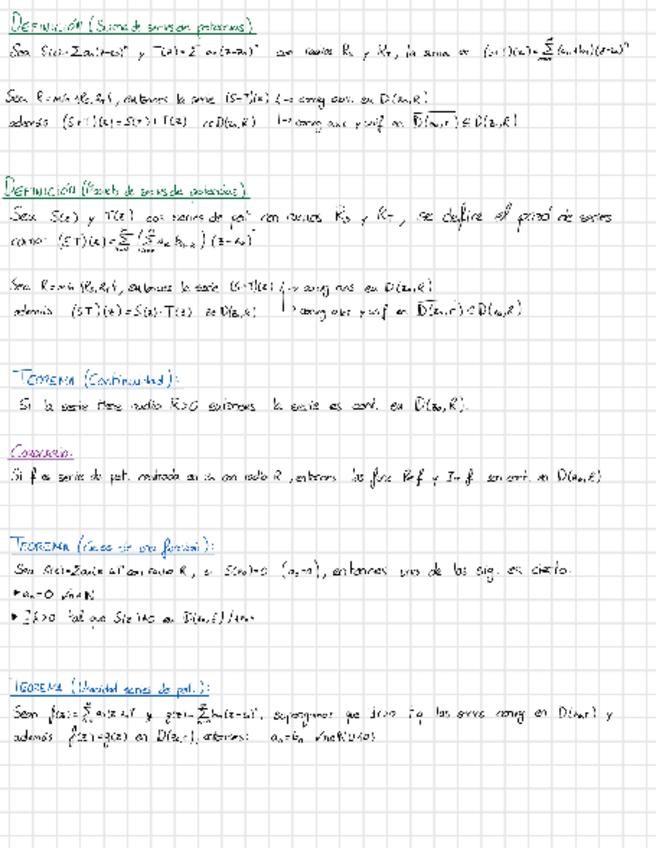 DEFINICIÓN (Suma de series de potencias).
Sea S(z)=Σan(z-z0)^n y T(z)=Σ bn(z-z0)^n con radios Rs y RT, la suma es (S+T)(z)=Σ(an+bn)(z-z0)^n
Sea R=min{Rs,RT}, entonces la serie (S+T)(z) conv abs. en D(z0,R)
además (S+T)(z)=S(z)+T(z) z∈D(z0,R) conv abs y unif en D(z0,r)⊆D(z0,R)
DEFINICIÓN (Producto de series de potencias).
Sea S(z) y T(z) dos series de pot con radios Rs y RT, se define el prod de series
como: (ST)(z)=Σ(Σ ak bn-k)(z-z0)^n
Sea R=min{Rs,RT}, entonces la serie (S·T)(z) conv abs en D(z0,R)
además (ST)(z)=S(z)·T(z) z∈D(z0,R) conv abs y unif en D(z0,r)⊆D(z0,R)
TEOREMA (Continuidad):
Si la serie tiene radio R>0 entonces la serie es cont. en D(z0,R).
COROLARIO.
Si f es serie de pot. centrada en z0 con radio R, entonces las func Re f y Im f son cont. en D(z0,R)
TEOREMA (Ceros de una función):
Sea S(z)=Σan(z-z0)^n con radio R, si S(z0)=0 (a0=0), entonces uno de los sig. es cierto.
▸ an=0 ∀n∈N
▸ ∃ε>0 tal que S(z)≠0 en D(z0,ε)\{z0}
TEOREMA (Unicidad series de pot.):
Sean f(z)=Σ an(z-z0)^n y g(z)=Σ bn(z-z0)^n, supongamos que ∃r>0 tq las series conv en D(z0,r) y
además f(z)=g(z) en D(z0,r), entonces: an=bn ∀n∈N∪{0}